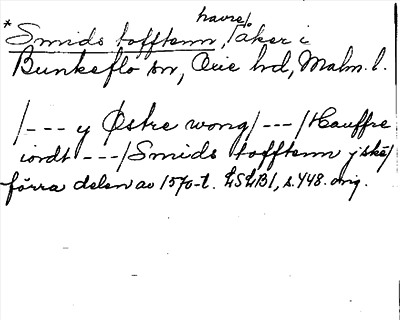 havre/
*Smids tofftenn, /åker i
Bunkeflo sn, Oxie hd, Malm. l.
/--- y Østre wong/---/Hauffre
iordt ---/Smids tofftenn j skè/
förra delen av 1570-t. LSLB1, s. 448. orig.